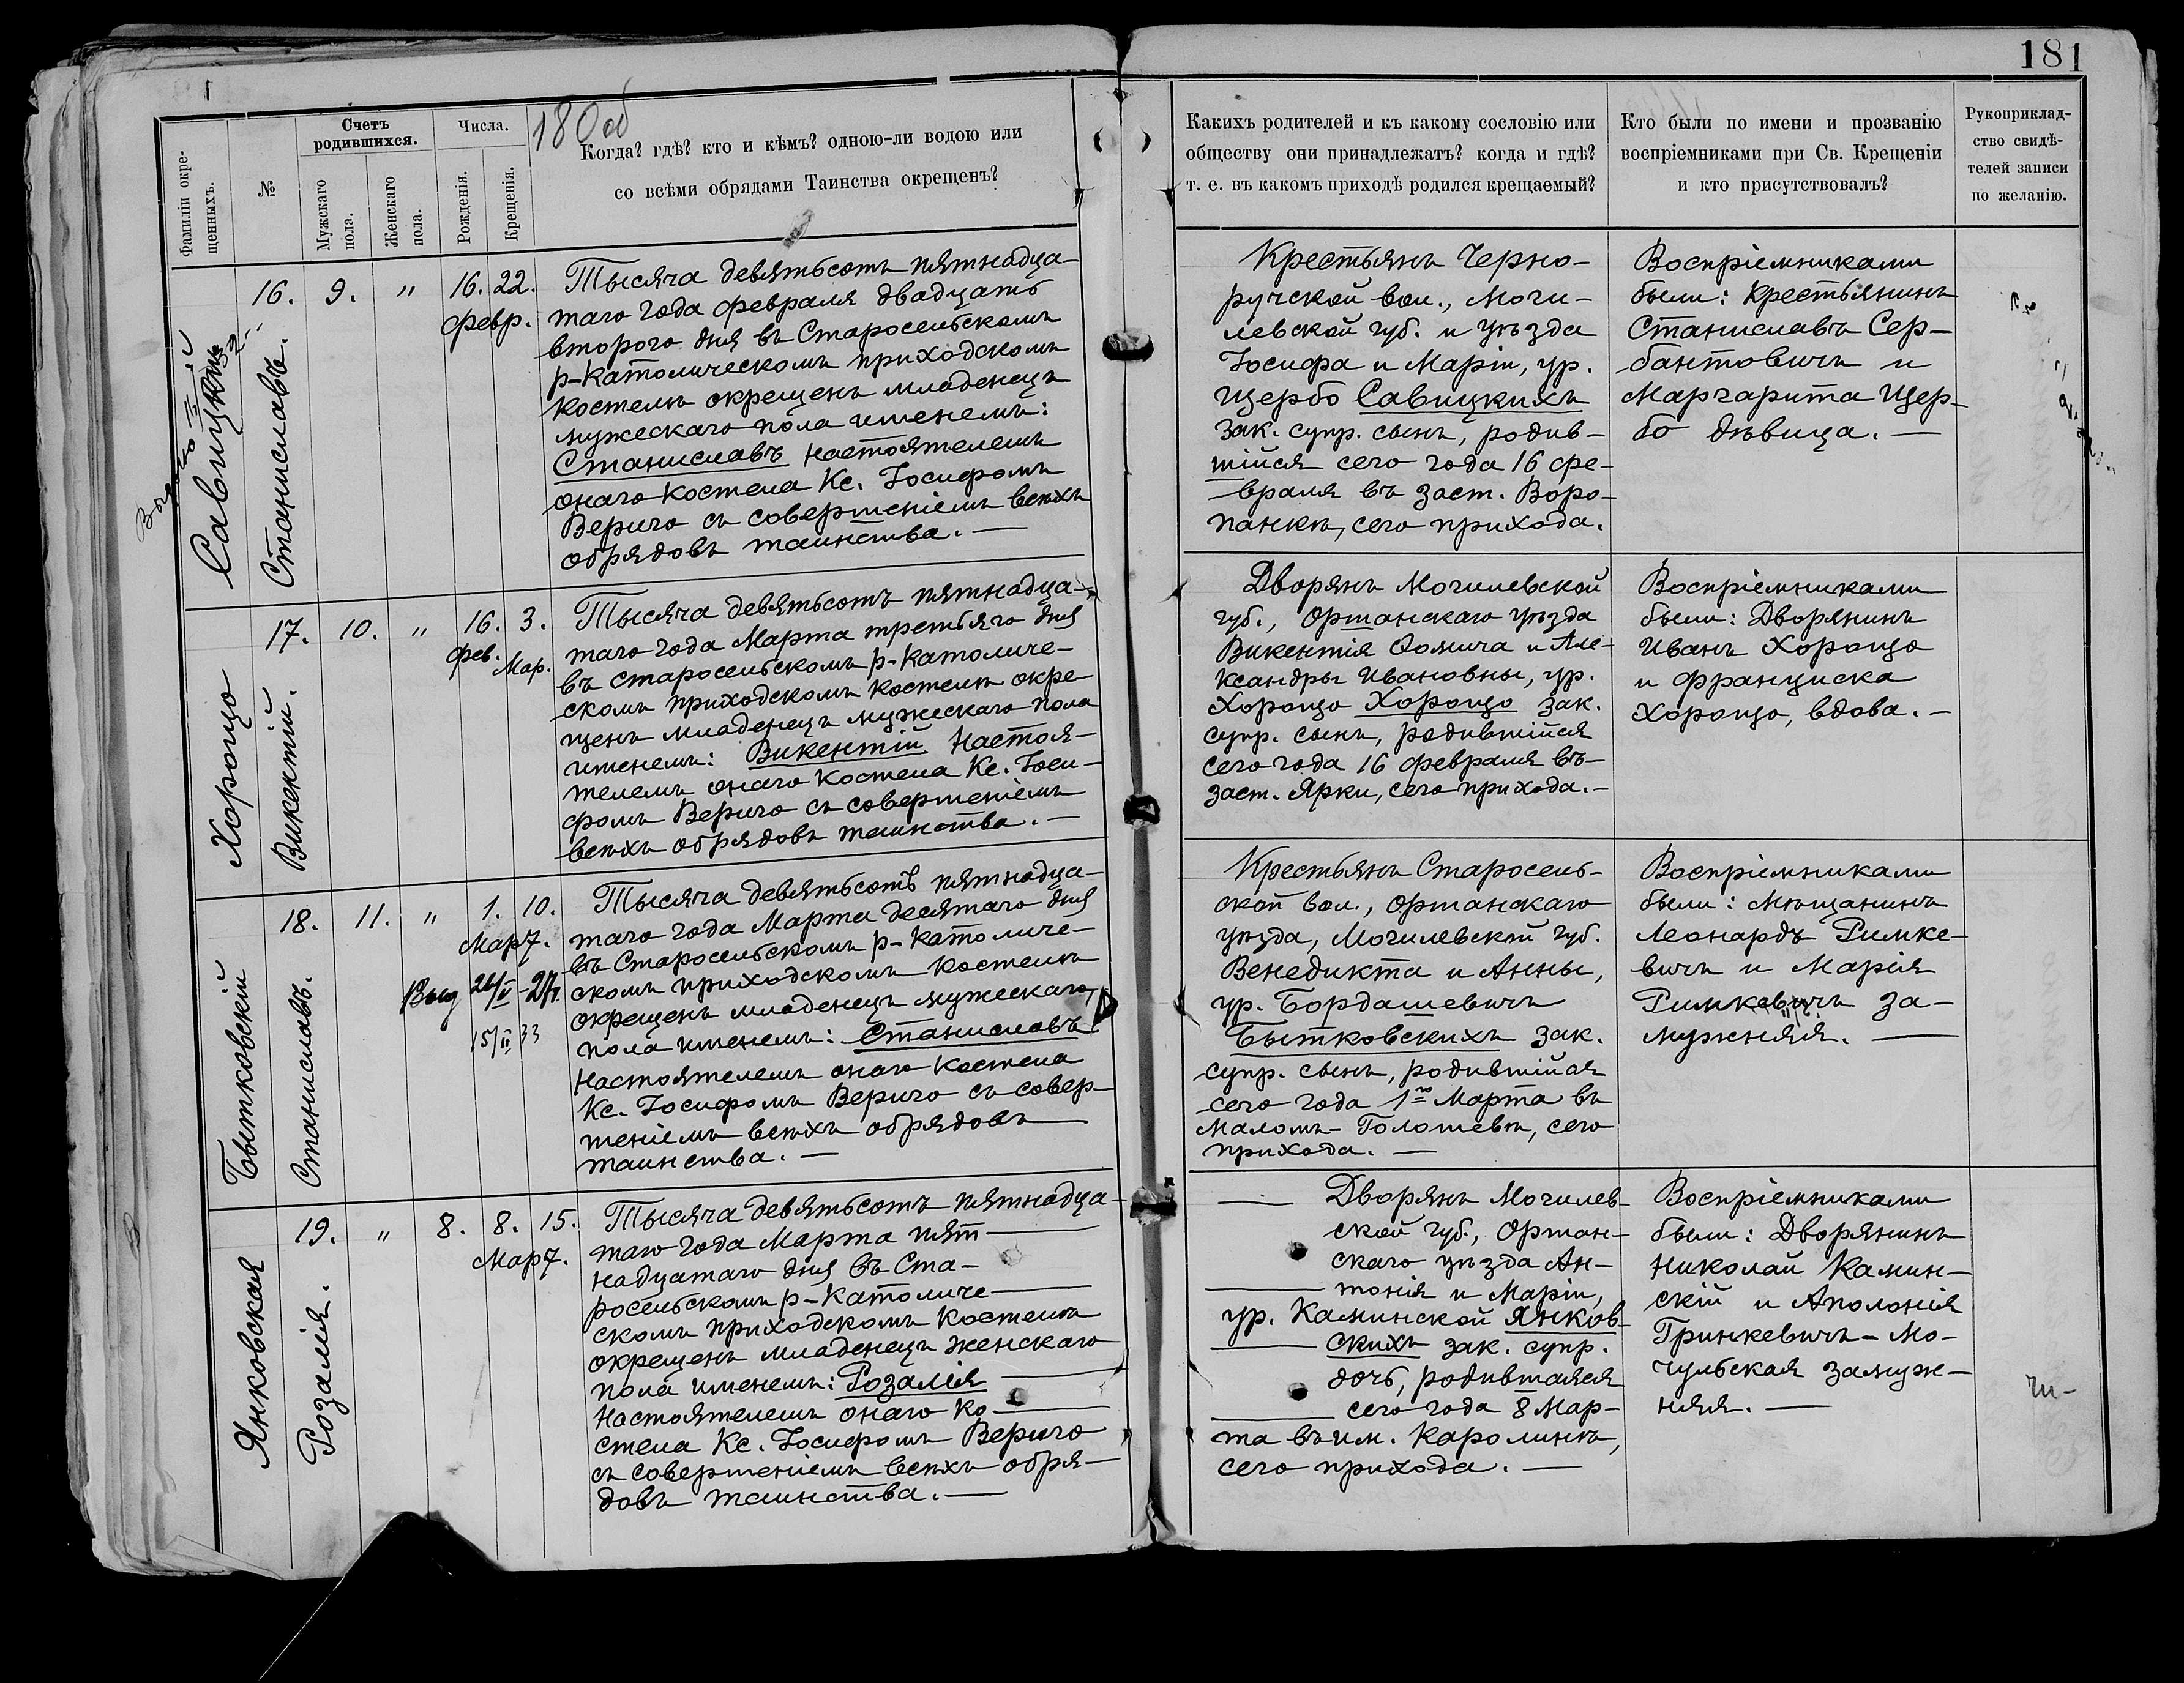 181
180 об
Фамиліи окрещенныхъ.
№
Счетъ родившихся.
Мужскаго пола.
Женскаго пола.
Числа.
Рожденія.
Крещенія.
Когда? гдѣ? кто и кѣмъ? одною-ли водою или
со всѣми обрядами Таинства окрещенъ?
Какихъ родителей и къ какому сословію или
обществу они принадлежатъ? когда и гдѣ?
т. е. въ какомъ приходѣ родился крещаемый?
Кто были по имени и прозванію
воспріемниками при Св. Крещеніи
и кто присутствовалъ?
Рукоприклад-
ство свидѣ-
телей записи
по желанію.
Савицкій
Станиславъ.
16. 9. " 16. 22.
февр.
Тысяча девятьсотъ пятнадца-
таго года февраля двадцать
второго дня въ Старосельскомъ
р-католическомъ приходскомъ
костелѣ окрещенъ младенецъ
мужескаго пола именемъ:
Станиславъ настоятелемъ
онаго костела Кс. Іосифомъ
Верыго съ совершеніемъ всѣхъ
обрядовъ таинства. —
Крестьянъ Черно-
ручской вол., Моги-
левской губ. и уѣзда
Іосифа и Маріи, ур.
Щербо Савицкихъ
зак. супр. сынъ, родив-
шійся сего года 16 фе-
враля въ заст. Воро-
панкѣ, сего прихода.
Воспріемниками
были: крестьянинъ
Станиславъ Сер-
бантовичъ и
Маргарита Щер-
бо дѣвица. —
Хорощо
Викентій.
17. 10. " 16. 3.
фев. Мар.
Тысяча девятьсотъ пятнадца-
таго года Марта третьяго дня
въ старосельскомъ р-католиче-
скомъ приходскомъ костелѣ окре-
щенъ младенецъ мужескаго пола
именемъ: Викентій Настоя-
телемъ онаго костела Кс. Іоси-
фомъ Верыго съ совершеніемъ
всѣхъ обрядовъ таинства. —
Дворянъ Могилевской
губ., Оршанскаго уѣзда
Викентія Ѳомича и Але-
ксандры Ивановны, ур.
Хорощо Хорощо зак.
супр. сынъ, родившійся
сего года 16 февраля въ
заст. Ярки, сего прихода. —
Воспріемниками
были: Дворянинъ
Иванъ Хорощо
и Франциска
Хорощо, вдова. —
Бытковскій
Станиславъ.
18. 11. " 1. 10.
Март.
15/II 33
Тысяча девятьсотъ пятнадца-
таго года Марта десятаго дня
въ Старосельскомъ р-католиче-
скомъ приходскомъ костелѣ
окрещенъ младенецъ мужескаго
пола именемъ: Станиславъ
Настоятелемъ онаго костела
Кс. Іосифомъ Верыго съ совер-
шеніемъ всѣхъ обрядовъ
таинства. —
Крестьянъ Старосель-
ской вол., Оршанскаго
уѣзда, Могилевской губ.
Венедикта и Анны,
ур. Бордашевичъ
Бытковскихъ зак.
супр. сынъ, родившійся
сего года 1го Марта въ
Маломъ-Голошевѣ, сего
прихода. —
Воспріемниками
были: Мѣщанинъ
Леонардъ Римке-
вичъ и Марія
Римкевичъ за-
мужняя. —
Янковская
Розалія.
19. " 8. 8. 15.
Март.
Тысяча девятьсотъ пятнадца-
таго года Марта пят-
надцатаго дня въ Ста-
росельскомъ р-католиче-
скомъ приходскомъ костелѣ
окрещенъ младенецъ женскаго
пола именемъ: Розалія
Настоятелемъ онаго ко-
стела Кс. Іосифомъ Верыго
съ совершеніемъ всѣхъ обря-
довъ таинства. —
Дворянъ Могилев-
ской губ., Оршан-
скаго уѣзда Ан-
тонія и Маріи,
ур. Каминской Янков-
скихъ зак. супр.
дочь, родившаяся
сего года 8 Мар-
та въ им. Каролинѣ,
сего прихода. —
Воспріемниками
были: Дворянинъ
Николай Камин-
скій и Аполонія
Гринкевичъ-Мо-
чульская замуж-
няя. —